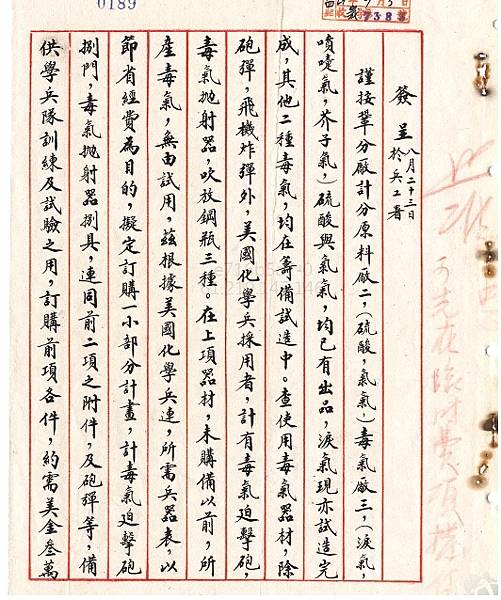 0189
7388
簽呈 八月二十三日
於兵工署
謹按鞏分廠計分原料廠二，（硫酸，氯氣，）毒氣廠三，（淚氣，
噴嚏氣，芥子氣，）硫酸與氯氣，均已有出品，淚氣現亦試造完
成，其他二種毒氣，均在籌備試造中。查使用毒氣器材，除
砲彈，飛機炸彈外，美國化學兵採用者，計有毒氣迫擊砲，
毒氣拋射器，吹放鋼瓶三種。在上項器材，未購備以前，所
產毒氣，無由試用，茲根據美國化學兵連，所需兵器表，以
節省經費為目的，擬定訂購一小部分計畫，計毒氣迫擊砲
捌門，毒氣拋射器捌具，連同前二項之附件，及砲彈等，備
供學兵隊訓練及試驗之用，訂購前項各件，約需美金叁萬